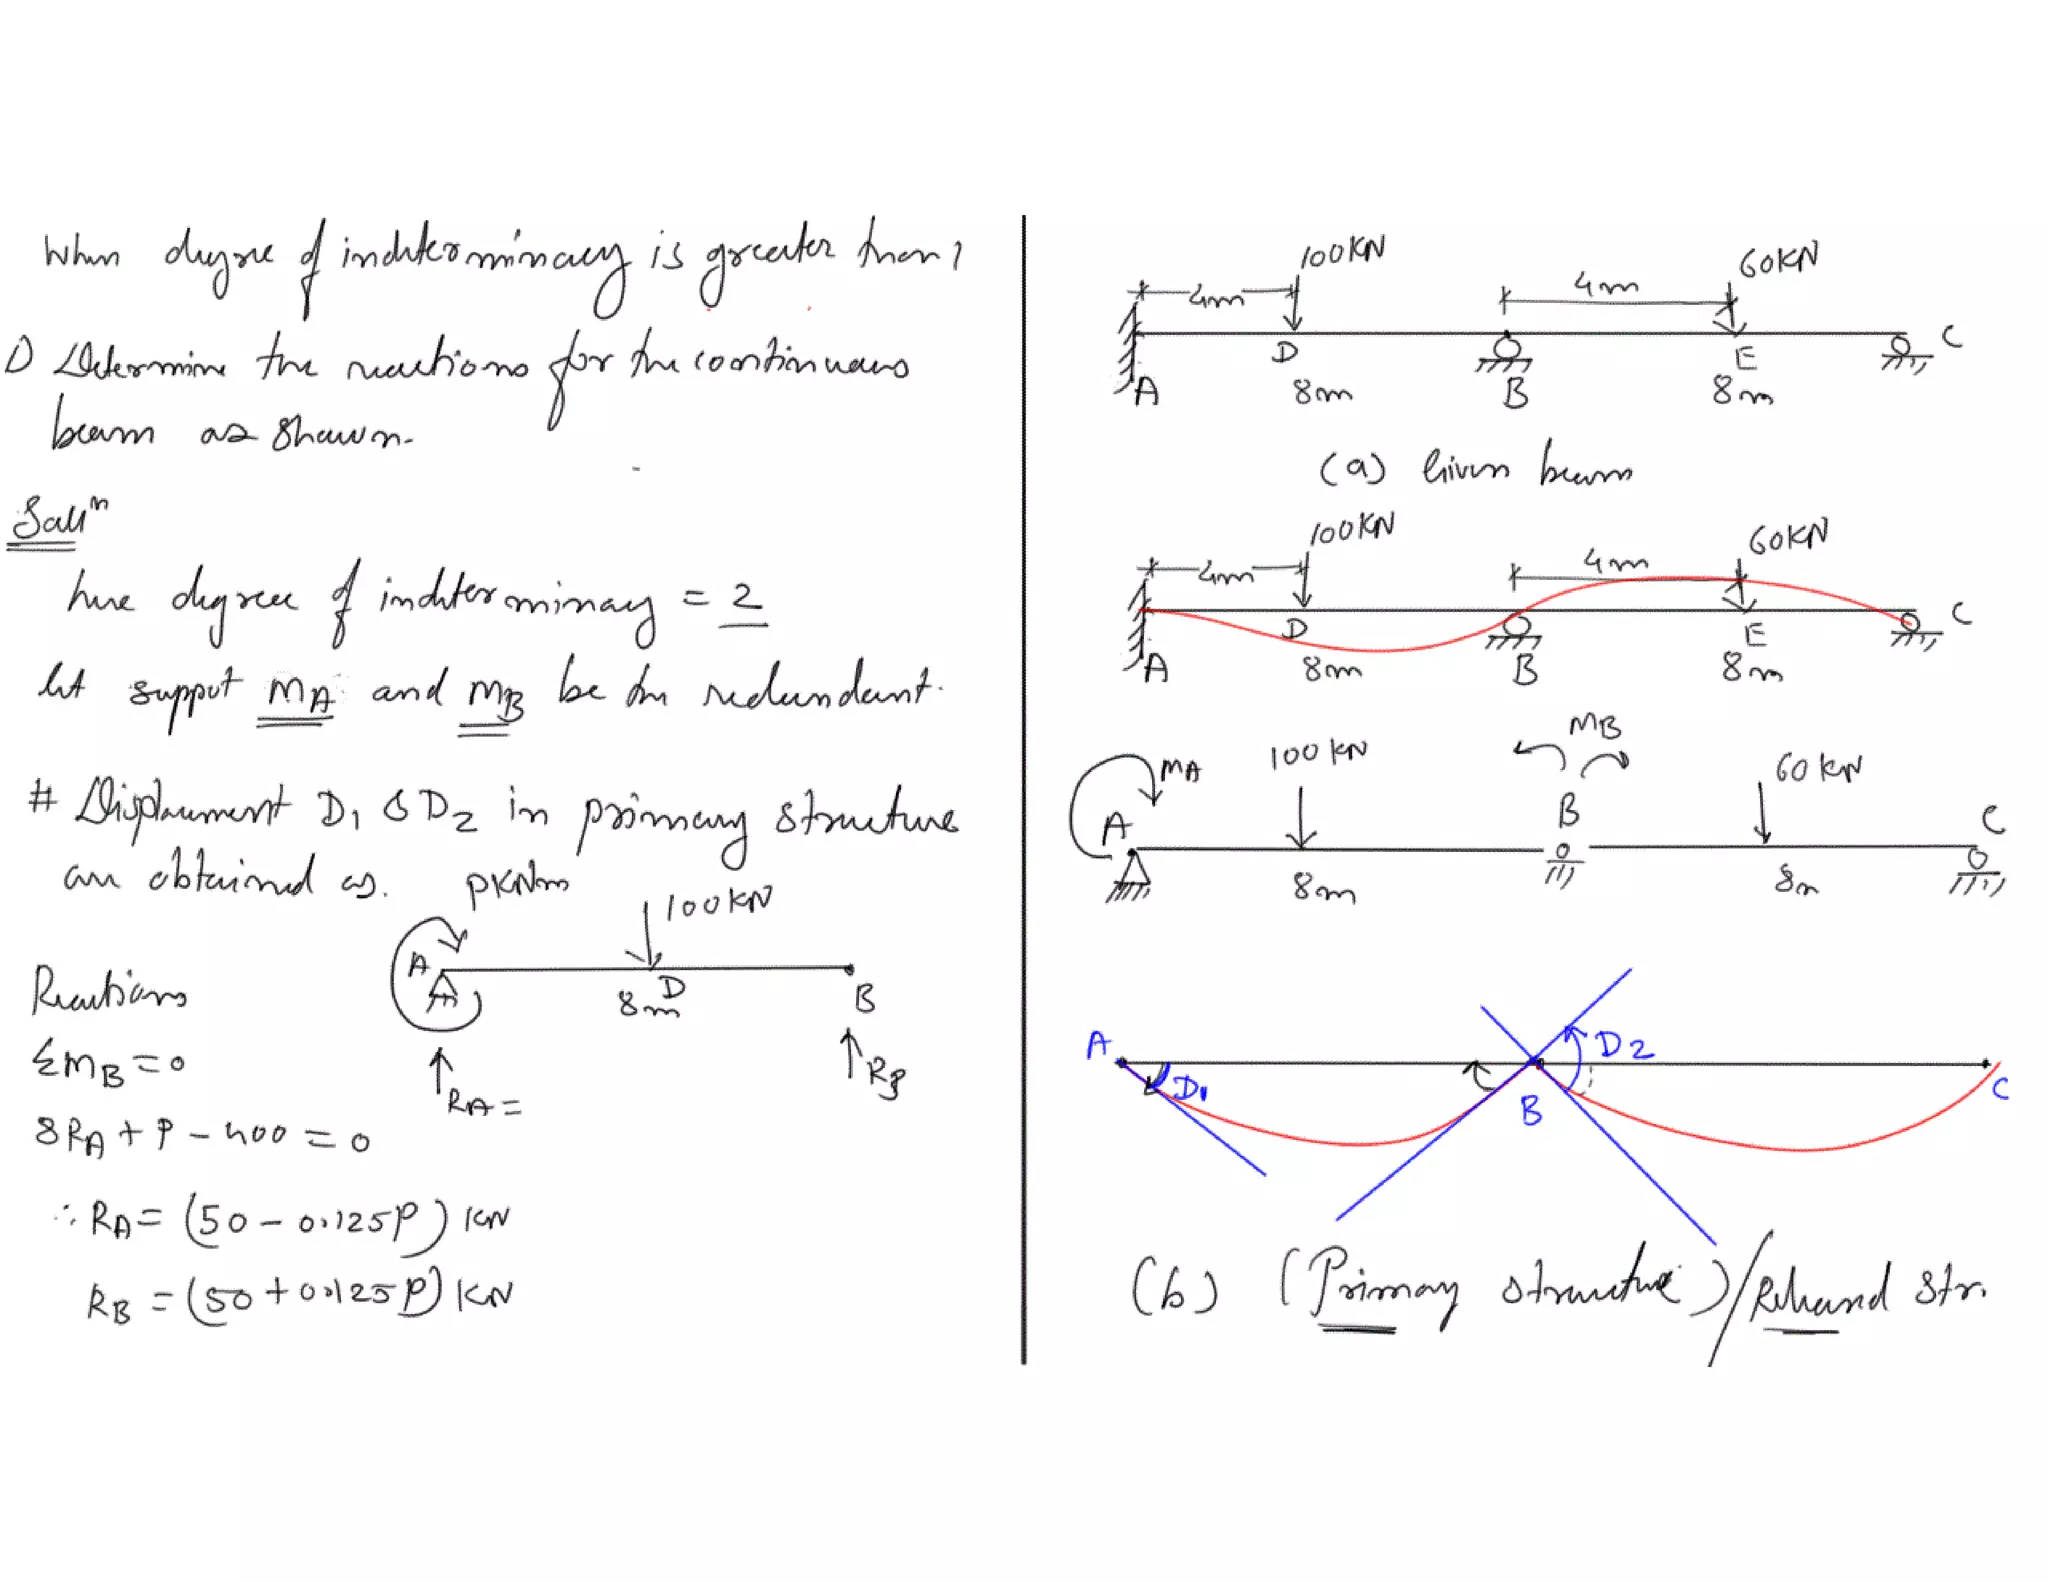 When degree of indeterminacy is greater than 1
1) Determine the reactions for the continuous
beam as shown.
Solⁿ
here degree of indeterminacy = 2
let support MA and MB be the redundant.
# Displacement D1 & D2 in primary structure
are obtained as.
PKNm
100KN
A
D
8m
B
RA =
RB
Reactions
ΣMB = 0
8RA + P - 400 = 0
∴ RA = (50 - 0.125P) KN
RB = (50 + 0.125P) KN
100KN
60KN
4m
4m
D
E
C
A
8m
B
8m
(a) Given beam
100KN
60KN
4m
4m
D
E
C
A
8m
B
8m
MB
MA
100KN
60KN
A
B
C
8m
8m
A
D1
D2
B
C
(b) (Primary structure)/Released Str.